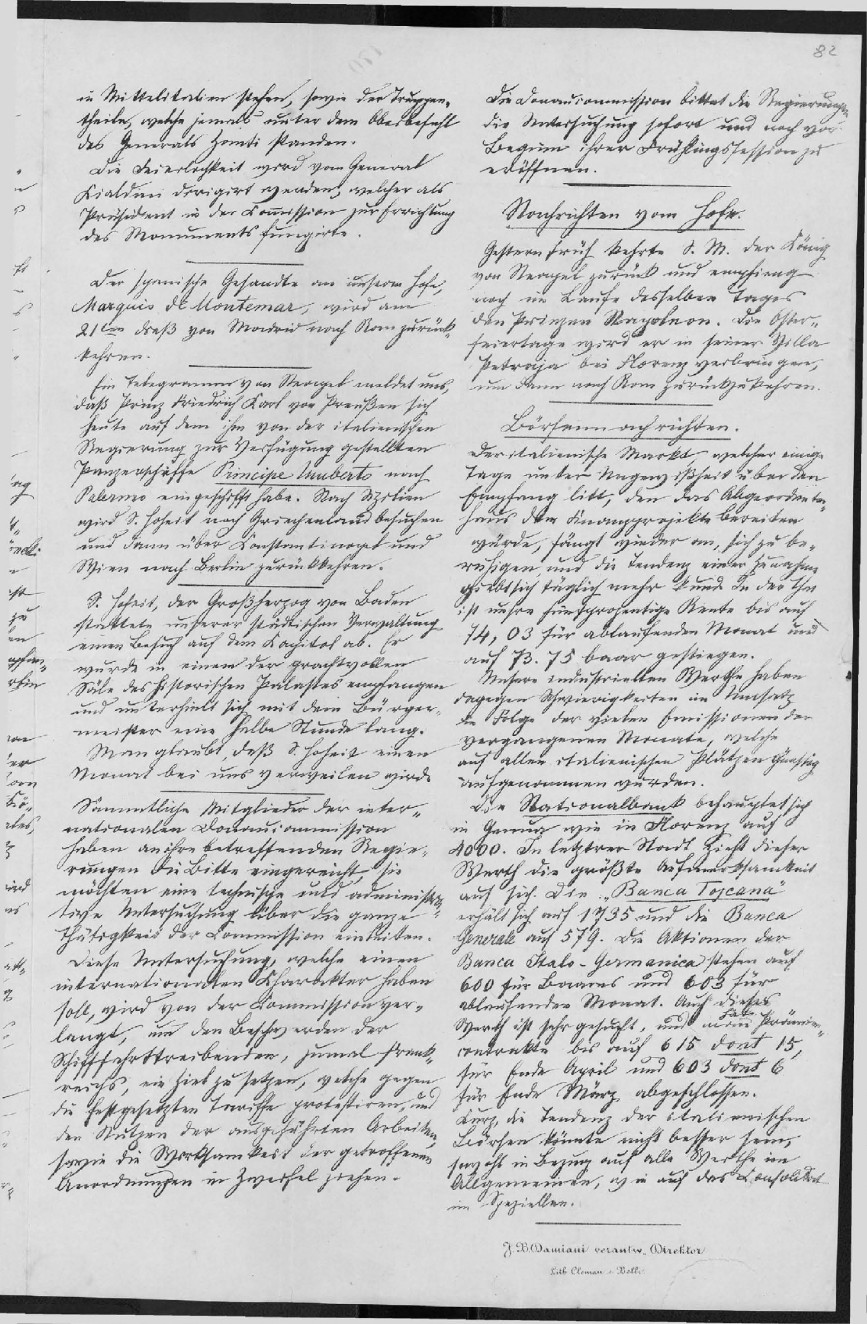 82
in Mittelitalien stehen, sowie der Truppen-
theile, welche jemals unter dem Oberbefehl
des Generals Fanti standen.
Die Feierlichkeit wird vom General
Cialdini dirigirt werden, welcher als
Präsident in der Commission zur Errichtung
des Monuments fungirte.
Der spanische Gesandte an unserm Hofe,
Marquis de Montemar, wird am
21ten dieß von Madrid nach Rom zurück-
kehren.
Ein Telegramm von Neapel meldet uns,
daß Prinz Friedrich Karl von Preußen sich
heute auf dem ihm von der italienischen
Regierung zur Verfügung gestellten
Panzerschiffe Principe Umberto nach
Palermo eingeschifft habe. Nach Sizilien
wird S. Hoheit noch Griechenland besuchen
und dann über Constantinopel und
Wien nach Berlin zurückkehren.
S. Hoheit, der Großherzog von Baden
stattete unserer städtischen Verwaltung
einen Besuch auf dem Kapitol ab. Er
wurde in einem der prachtvollen
Säle des historischen Palastes empfangen
und unterhielt sich mit dem Bürger-
meister eine halbe Stunde lang.
Man glaubt, daß S. Hoheit einen
Monat bei uns verweilen wird.
Sämmtliche Mitglieder der inter-
nationalen Donaucommission
haben an ihre betreffenden Regie-
rungen die Bitte eingereicht, sie
möchten eine technische und administra-
tive Untersuchung über die ganze
Thätigkeit der Commission einleiten.
Diese Untersuchung, welche einen
internationalen Charakter haben
soll, wird von der Commission ver-
langt, um den Beschwerden der
Schifffahrttreibenden, zumal Frank-
reichs, ein Ziel zu setzen, welche gegen
die festgesetzten Tariffe protestiren, und
den Nutzen der ausgeführten Arbeiten,
sowie die Wirksamkeit der getroffenen
Anordnungen in Zweifel ziehen.
Die Donaucommission bittet die Regierungen
die Untersuchung sofort und noch vor
Beginn ihrer Frühlingssession zu
eröffnen.
Nachrichten vom Hofe.
Gestern früh kehrte S. M. der König
von Neapel zurück und empfieng
noch im Laufe desselben Tages
den Prinzen Napoleon. Die Oster-
feiertage wird er in seiner Villa
Petraja bei Florenz verbringen,
um dann nach Rom zurückzukehren.
Börsennachrichten.
Der italienische Markt, welcher einige
Tage unter Ungewißheit über den
Empfang litt, den das Abgeordneten-
haus den Finanzprojekten bereiten
würde, fängt wieder an, sich zu be-
ruhigen, und die Tendenz einer Zunahme
gibt sich täglich mehr kund. In der That
ist unsre fünfprozentige Rente bis auf
74,03 für ablaufenden Monat und
auf 73.75 baar gestiegen.
Unsere industriellen Werthe haben
dagegen Schwierigkeiten im Umsatz
in Folge der vielen Emissionen der
vergangenen Monate, welche
auf allen italienischen Plätzen günstig
aufgenommen wurden.
Die Nationalbank behauptet sich
in Genua wie in Florenz auf
4000. In letztrer Stadt zieht dieser
Werth die größte Aufmerksamkeit
auf sich. Die „Banca Toscana"
erhält sich auf 1735 und die Banca
Generale auf 579. Die Aktionen der
Banca Italo-Germanica stehen auf
600 für Baares und 603 für
ablaufenden Monat. Auch dieses
Werth ist sehr gesucht, und Prämien-
contrakte bis auf 615 dont 15,
für Ende April und 603 dont 6
für Ende März abgeschlossen.
Kurz, die Tendenz der italienischen
Börsen könnte nicht besser sein,
sowohl in Bezug auf alle Werthe im
Allgemeinen, wie auf das Consolidat
im Speziellen.
J. B. Damiani verantw. Direktor
Lith.